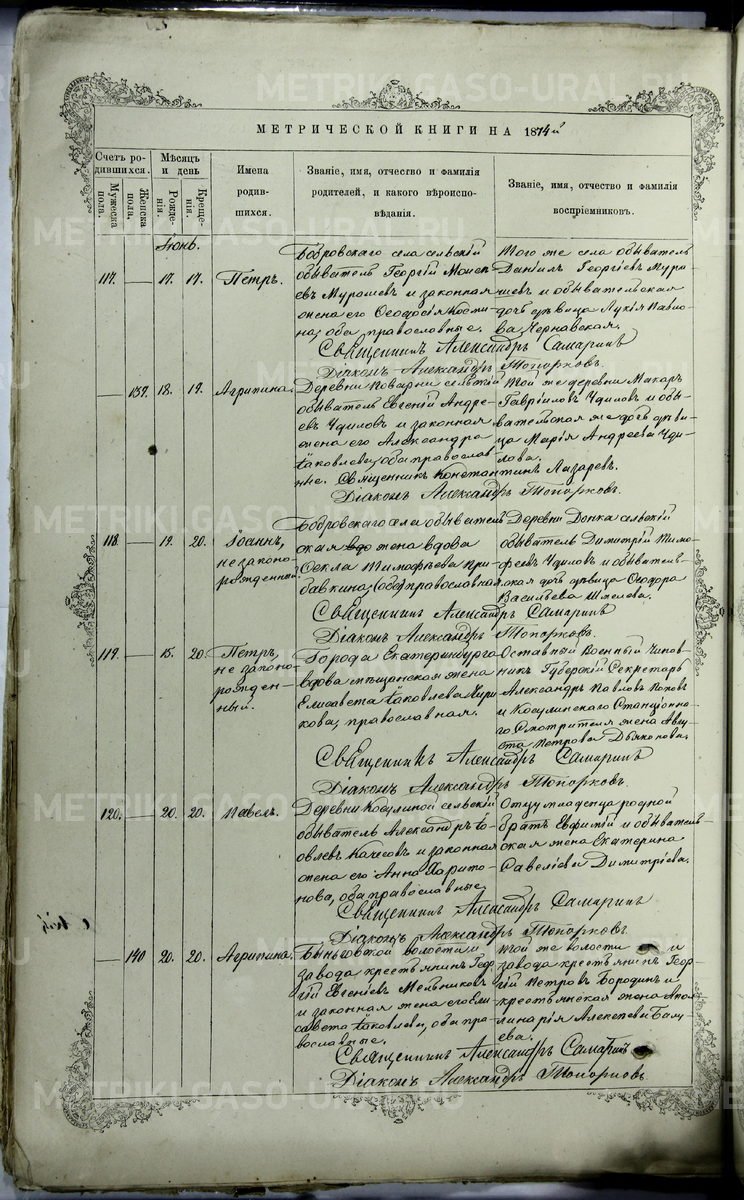 МЕТРИЧЕСКОЙ КНИГИ НА 1874й
Счетъ родившихся.
Мужеска пола.
Женска пола.
Мѣсяцъ и день
Рожденія.
Крещенія.
Имена родившихся.
Званіе, имя, отчество и фамилія
родителей, и какого вѣроисповѣданія.
Званіе, имя, отчество и фамилія
воспріемниковъ.
Іюнь.
117. — 17. 17. Петръ.
Бобровскаго села сельскій
обыватель Георгій Моисеевъ
Мурашевъ и законная
жена его Ѳеодосія Космина,
оба православные.
Того же села обыватель
Даніилъ Георгіевъ Мурашевъ
и обывательская
дочь дѣвица Лукія Павлова
Чернавская.
Священникъ Александръ Самаринъ
Діаконъ Александръ Топорковъ.
— 139. 18. 19. Агрипина.
Деревни Поварни сельскій
обыватель Евгеній Андреевъ
Чдиловъ и законная
жена его Александра
Іаковлева, оба православные.
Той же деревни Макаръ
Гавріиловъ Чдиловъ и обывательская
же дочь дѣвица
Марія Андреева Чдилова.
Священникъ Константинъ Лазаревъ.
Діаконъ Александръ Топорковъ.
118. — 19. 20. Іоаннъ,
незаконорожденный.
Бобровскаго села обывательская
жена вдова
Ѳекла Тимофѣева Прибавкина,
православная.
Деревни Донка сельскій
обыватель Димитрій Тимофеевъ
Чдиловъ и обывательская
дочь дѣвица Ѳеодора
Васильева Шмелова.
Священникъ Александръ Самаринъ
Діаконъ Александръ Топорковъ.
119. — 15. 20. Петръ,
незаконорожденный.
Города Екатеринбурга
вдова мѣщанская жена
Елисавета Іаковлева
православная.
Отставный Военный Чиновникъ
Губерскій Секретарь
Александръ Павловъ Поповъ
и Косулинскаго Станціоннаго
Смотрителя жена Августа
Петрова Дьяконова.
Священникъ Александръ Самаринъ
Діаконъ Александръ Топорковъ.
120. — 20. 20. Павелъ.
Деревни Косулиной сельскій
обыватель Александръ Іаковлевъ
Качесовъ и законная
жена его Анна Харитонова,
оба православные.
Отцу младенца родной
братъ Евфимій и обывательская
жена Екатерина
Савеліева Димитріева.
Священникъ Александръ Самаринъ
Діаконъ Александръ Топорковъ.
— 140 20. 20. Агрипина.
Быньговской волости и
завода крестьянинъ Георгій
Евгеніевъ Мельниковъ
и законная жена его Елисавета
Іаковлева, оба православные.
Той же волости и
завода крестьянинъ Георгій
Петровъ Бородинъ и
крестьянская жена Аполлинарія
Алексеева
Священникъ Александръ Самаринъ
Діаконъ Александръ Топорковъ
METRIKI.GASO-URAL.RU